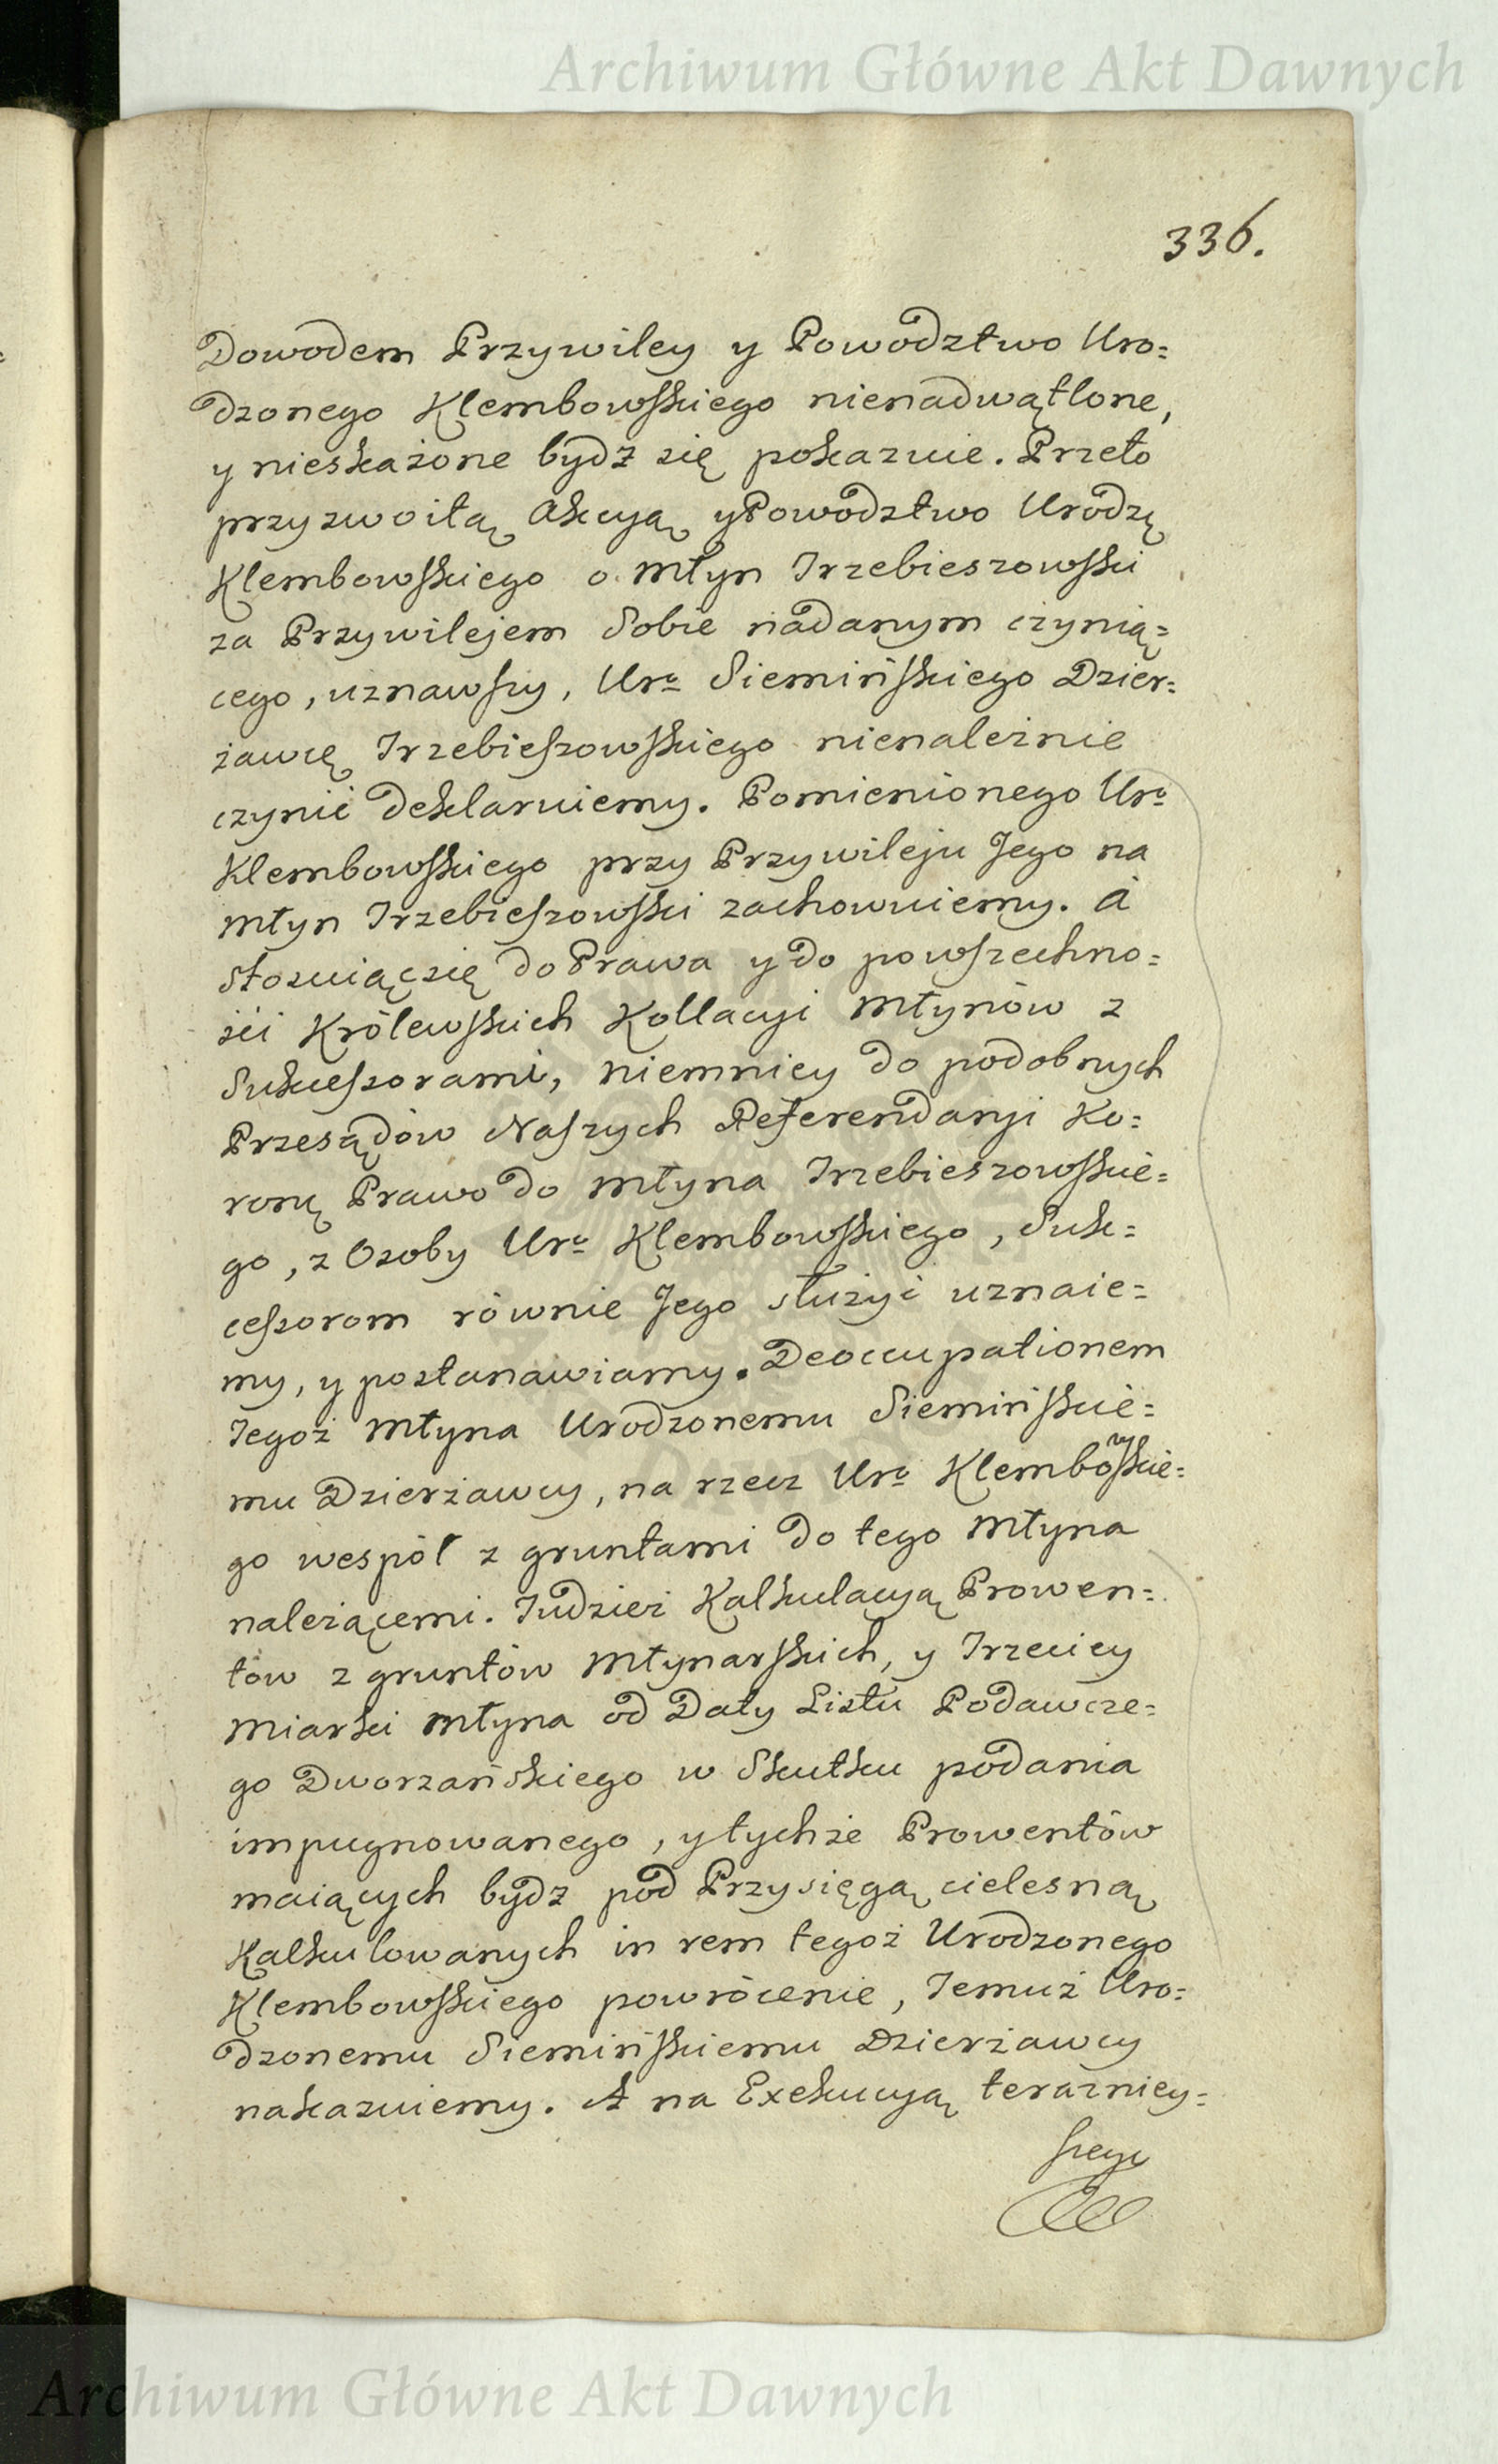 Archiwum Główne Akt Dawnych
336.
Dowodem Przywiley y Powodztwo Uro=
dzonego Klembowskiego nienadwątlone,
y nieskażone bydź się pokazuie. Przeto
przyzwoitą Akcyą y Powodztwo Urodzę
Klembowskiego o Młyn Trzebieszowski
za Przywilejem Sobie nadanym czynią=
cego, uznawszy, Uro Siemińskiego Dzier=
żawcę Trzebieszowskiego nienależnie
czynić deklaruiemy. Pomienionego Uro
Klembowskiego przy Przywileju Jego na
Młyn Trzebieszowski zachowuiemy. A
stosuiąc się do Prawa y do powszechno=
ści Królewskich Kollacyi Młynów z
Sukcessorami, niemniey do podobnych
Przesądów Naszych Referendaryi Ko=
ronę Prawo do Młyna Trzebieszowskie=
go, z Osoby Uro Klembowskiego, Suk=
cessorom równie Jego służyć uznaie=
my, y postanawiamy. Deoccupationem
Tegoż Młyna Urodzonemu Siemińskie=
mu Dzierżawcy, na rzecz Uro Klembowskie=
go wespół z gruntami do tego Młyna
należącemi. Tudzież Kalkulacyą Prowen=
tów z gruntów Młynarskich, y Trzeciey
Miarki Młyna od Daty Listu Podawcze=
go Dworzańskiego w Skutku podania
impugnowanego, y tychże Prowentów
maiących bydź pod Przysięgą cielesną
Kalkulowanych in rem tegoż Urodzonego
Klembowskiego powrócenie, Temuż Uro=
dzonemu Siemińskiemu Dzierżawcy
nakazuiemy. A na Exekucyą teraźniey=
szego
Archiwum Główne Akt Dawnych